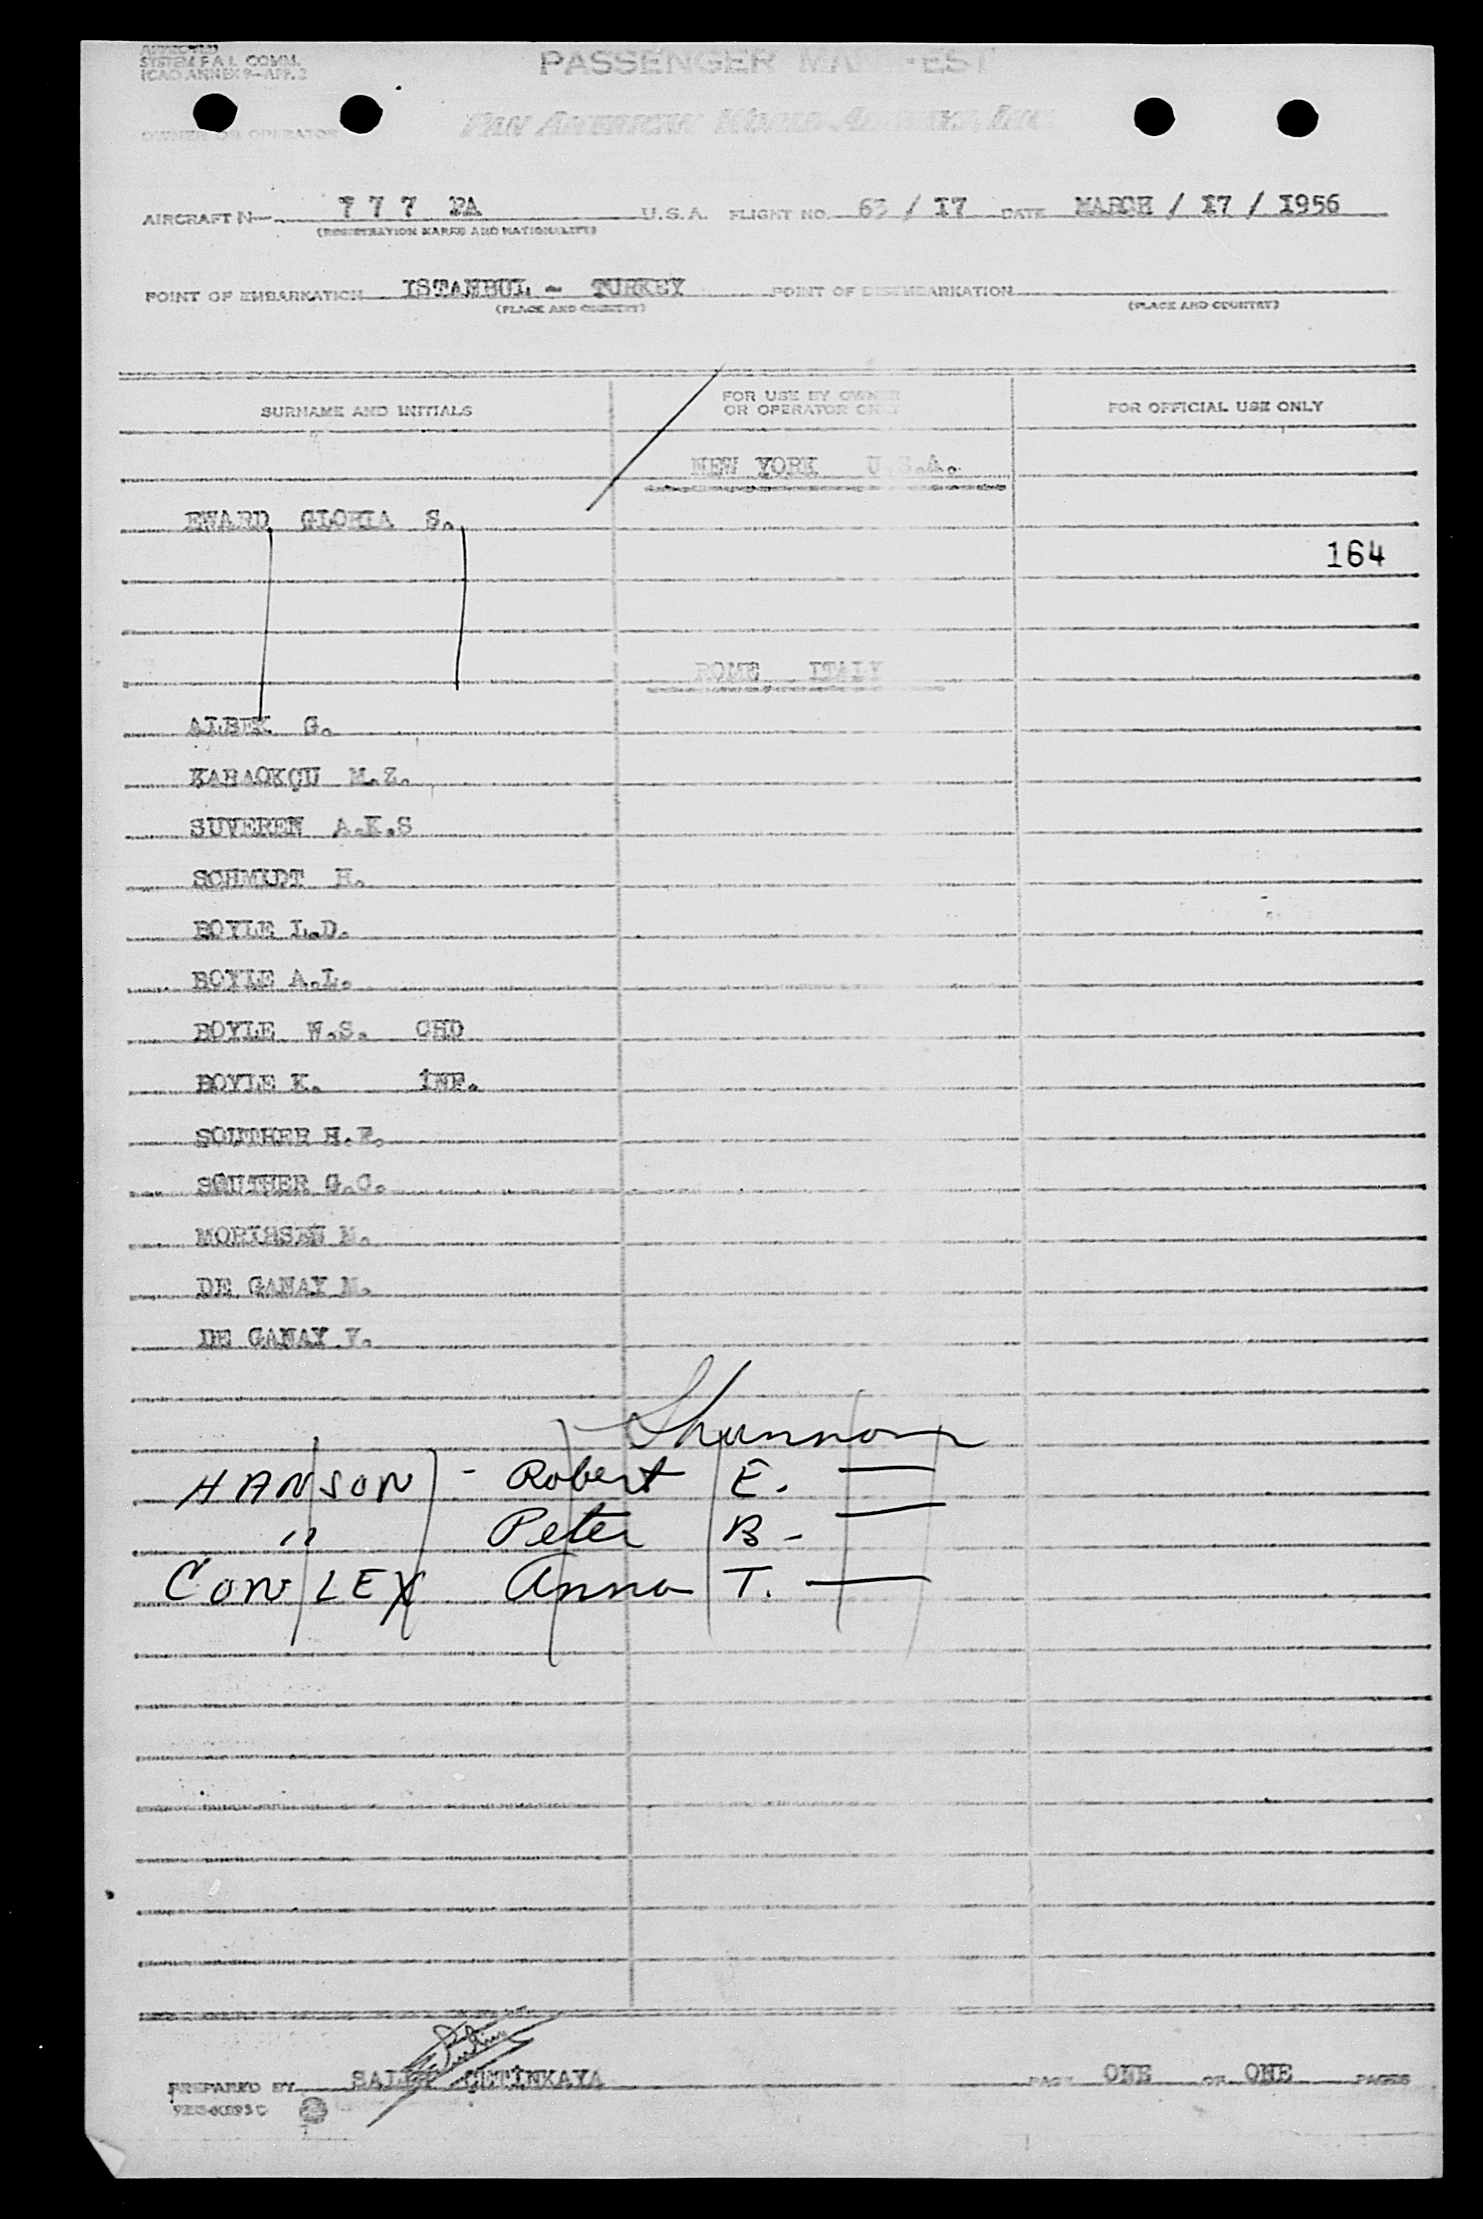 APPROVED
SYSTEM F A L COMM.
ICAO ANNEX 9-APP. 2
PASSENGER MANIFEST
OWNER OR OPERATOR
PAN AMERICAN WORLD AIRWAYS, INC.
AIRCRAFT N 7 7 7 PA U.S.A. FLIGHT NO. 63 / 17 DATE MARCH / 17 / 1956
(REGISTRATION MARKS AND NATIONALITY)
POINT OF EMBARKATION ISTANBUL - TURKEY POINT OF DISEMBARKATION
(PLACE AND COUNTRY) (PLACE AND COUNTRY)
SURNAME AND INITIALS FOR USE BY OWNER OR OPERATOR ONLY FOR OFFICIAL USE ONLY
NEW YORK U.S.A.
EWARD GLORIA S.
164
ROME ITALY
ALBEK G.
KARAOKÇU M.Z.
SUVEREN A.K.S
SCHMIDT H.
BOYLE L.D.
BOYLE A.L.
BOYLE W.S. CHD
BOYLE K. İNF.
SOUTHER H.E.
SOUTHER G.C.
MORIHSEN N.
DE GANAY N.
DE GANAY V.
Shannon
HANSON - Robert E. —
" Peter B - —
CONLEY Anna T. —
PREPARED BY SALİH ÇETİNKAYA PAGE ONE OF ONE PAGES